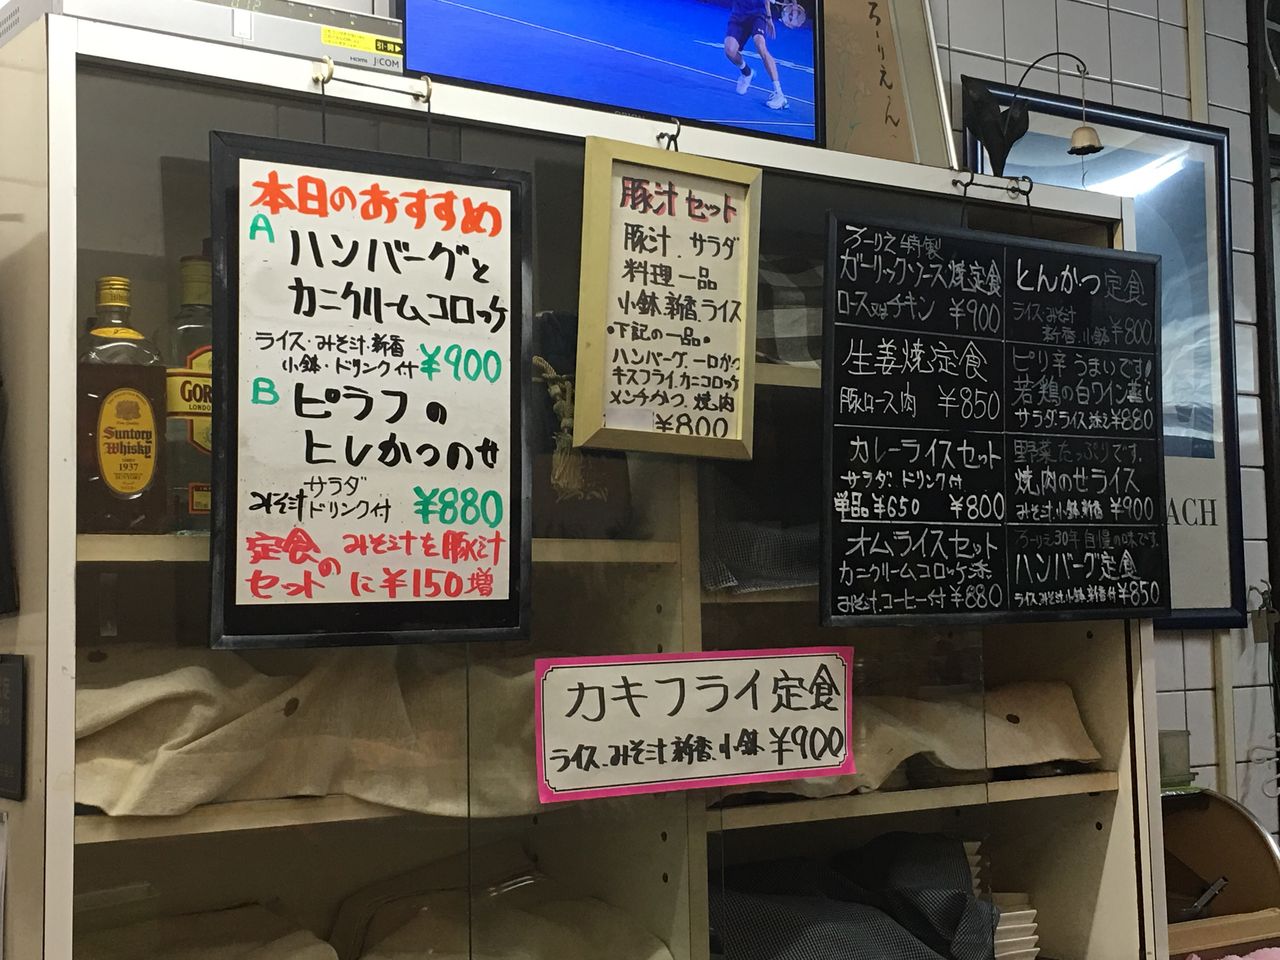 引・開▶
HDMI
J:COM
ろーりえん
本日のおすすめ
A
ハンバーグと
カニクリームコロッケ
ライス・みそ汁・新香
小鉢・ドリンク付 ¥900
B
ピラフの
ヒレかつのせ
サラダ
みそ汁 ドリンク付 ¥880
定食の みそ汁を豚汁
セット に¥150増
豚汁セット
豚汁.サラダ
料理一品
小鉢.新香.ライス
•下記の一品•
ハンバーグ.一口かつ
キスフライ.カニコロッケ
メンチかつ.焼肉
¥800
ろーりえ特製
ガーリックソース焼定食
ロース又はチキン ¥900
生姜焼定食
豚ロース肉 ¥850
カレーライスセット
サラダ.ドリンク付
単品¥650 ¥800
オムライスセット
カニクリームコロッケ添
みそ汁.コーヒー付¥880
とんかつ定食
ライス.みそ汁
新香.小鉢¥800
ピリ辛うまいです!
若鶏の白ワイン蒸し
サラダ.ライス
¥880
野菜たっぷりです.
焼肉のせライス
みそ汁.小鉢.新香 ¥900
ろーりえ30年自慢の味です.
ハンバーグ定食
ライス.みそ汁.小鉢.新香付¥850
カキフライ定食
ライス.みそ汁.新香.小鉢 ¥900
Suntory
Whisky
1937
GOR
LONDO
ACH